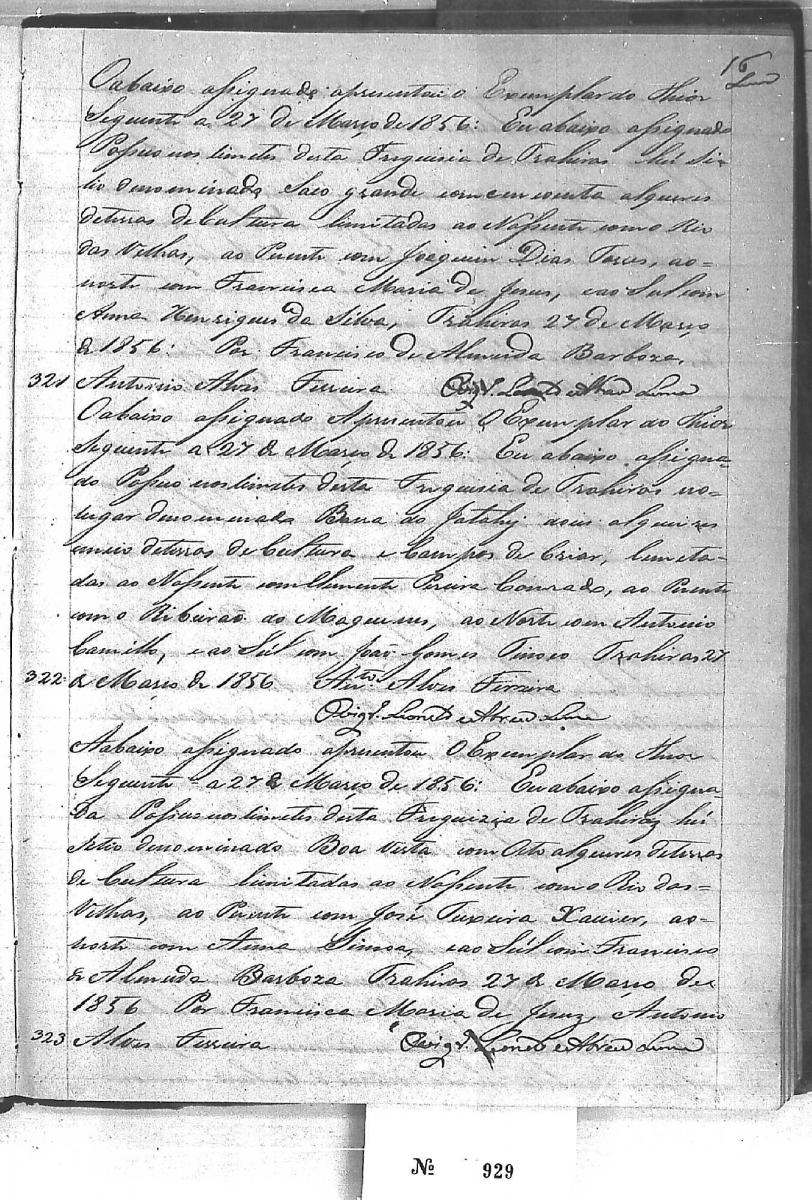 16
O abaixo assignado apresentou o Exemplar do theor
Seguente a 27 de Março de 1856: Eu abaixo assignado
Possuo nos limetes desta Freguisia de Trahiras hũ Si-
tio denominado Saco grande com cincoenta alqueres
deterras de Cultura limitadas ao Nassente com o Rio
das Velhas, ao Puente com Joaquim Dias Torres, ao-
norte com Francisca Maria de Jesus, e ao Sul com
Anna Henriques da Silva, Trahiras 27 de Março
de 1856: Por Francisco de Almeida Barboza,
321 Antonio Alves Ferreira O Vigr.º Leonel de Abreu Lima
O abaixo assignado Apresentou O Exemplar do theor
Seguente a 27 de Março de 1856: Eu abaixo assigna-
do Possuo nos limetes desta Freguisia de Trahiras no-
lugar denominado Barra do Jatahy dois alqueires
emeio deterras de Cultura e Campos de Criar, limeta-
das ao Nassente com Clemente Pereira Conrado, ao Puente
com o Ribeirão do Maquine, ao Norte com Antonio
Camillo, e ao Sul com João Gomes Trahiras 27
322 de Março de 1856 Anto. Alves Ferreira
O Vigr.º Leonel de Abreu Lima
A abaixo assignado apresentou O Exemplar do theor
Seguente a 27 de Março de 1856: Eu abaixo assigna-
da Possuo nos limetes desta Freguezia de Trahiras hũ
Sitio denominado Boa Vista com Oito alqueres deterras
de Cultura limitadas ao Nassente com o Rio das-
Velhas, ao Puente com José Teixeira Xavier, ao-
norte com Anna e ao Sul com Francisco
de Almeida Barboza Trahiras 27 de Março de
1856 Por Francisca Maria de Jesuz, Antonio
323 Alves Ferreira O Vigr.º Leonel de Abreu Lima
Nº 929